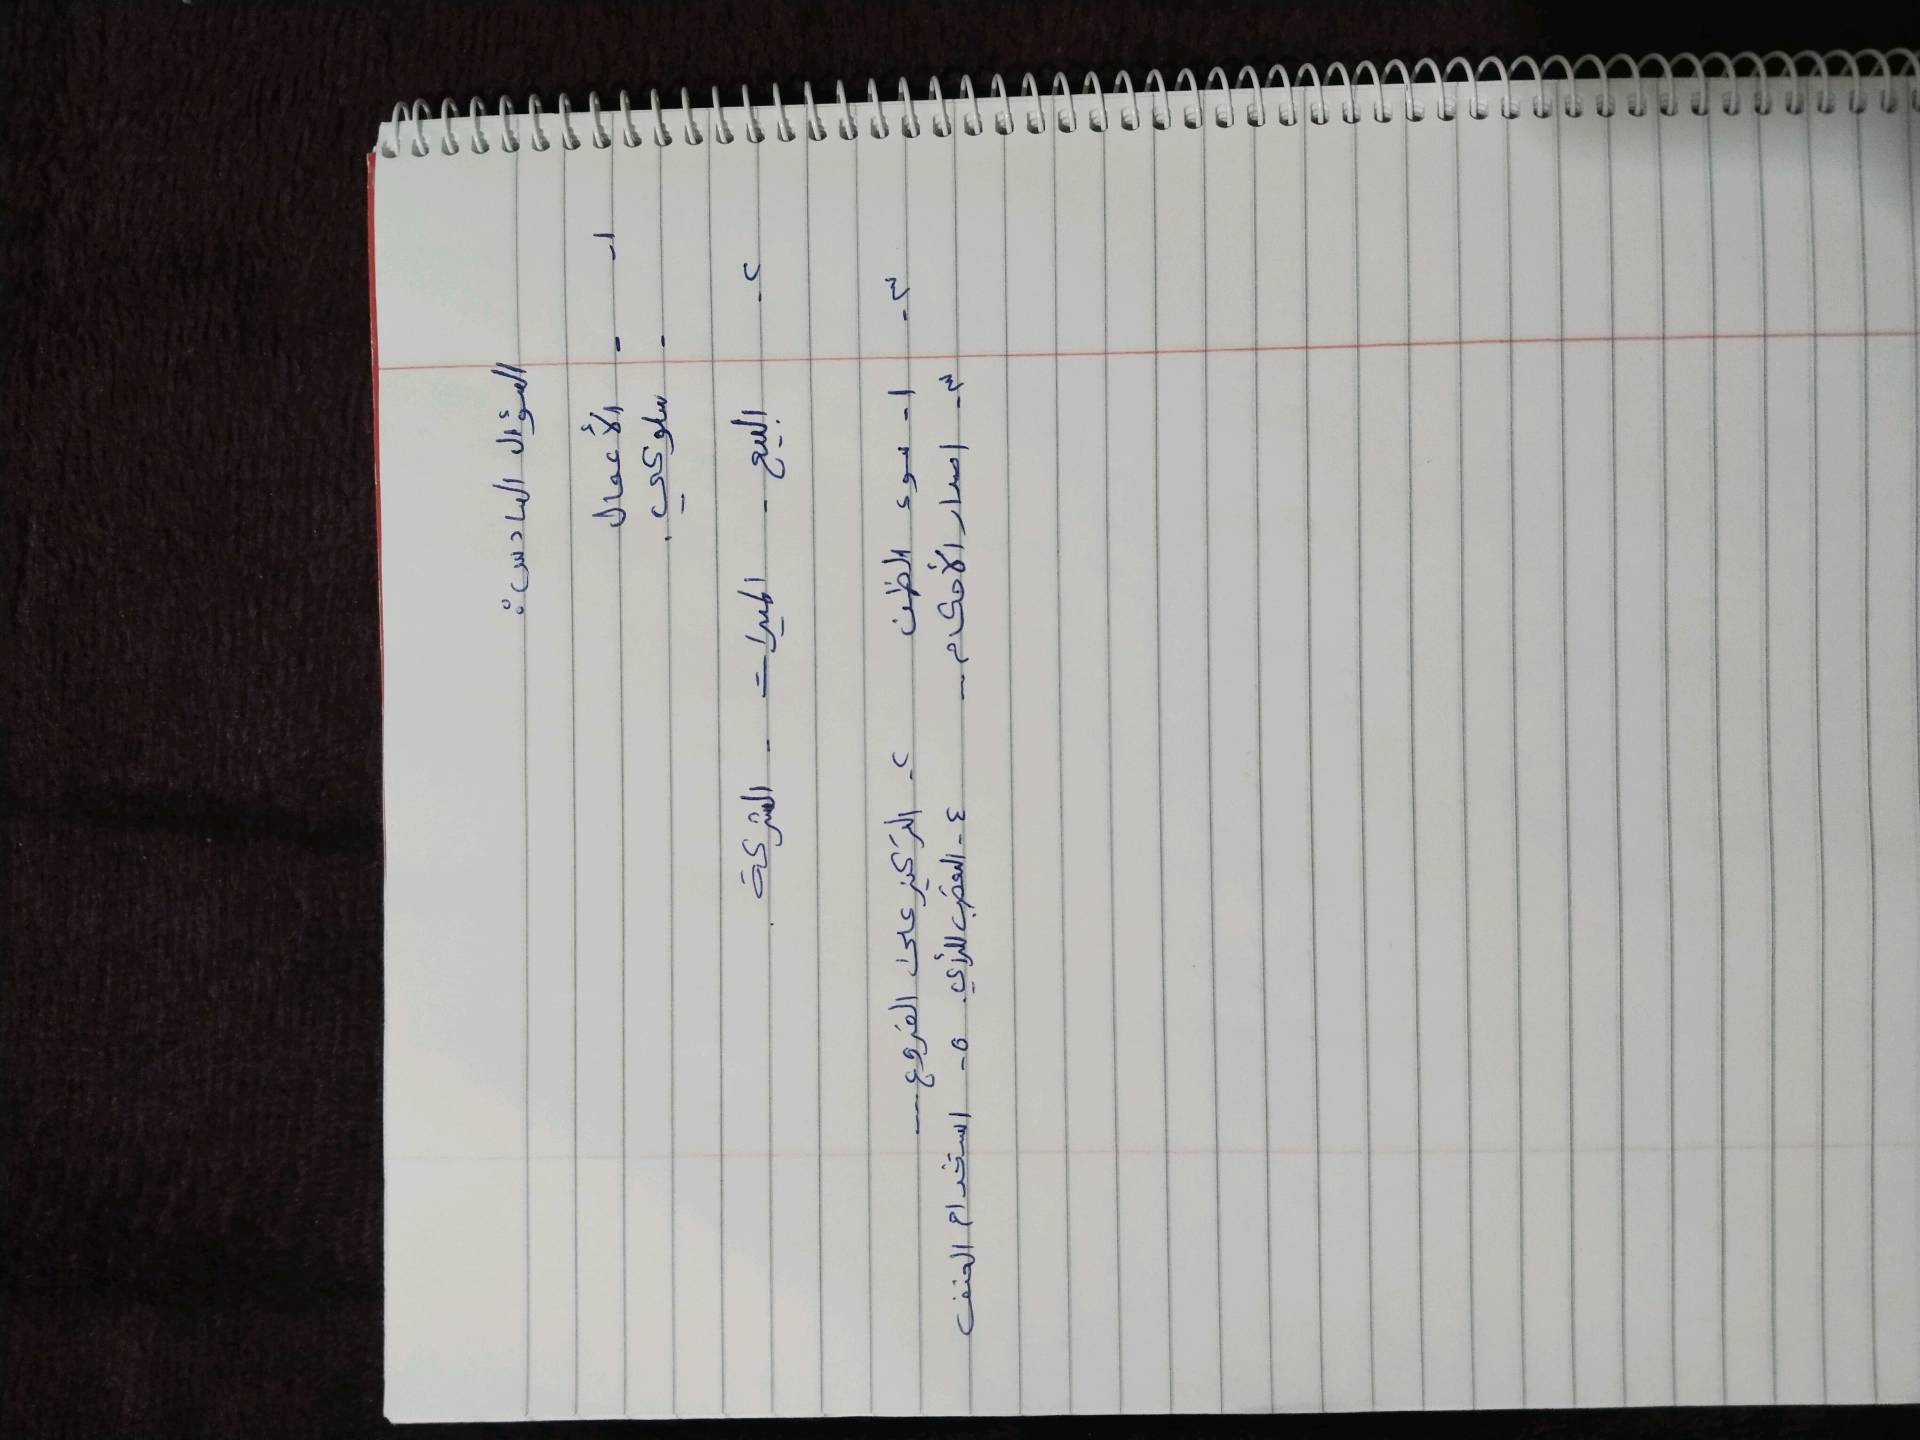 السؤال السادس:
١- - الأعمال
- سلوكي.
٢- البيع - الميراث - الشركة.
٣- ١- سوء الظن ٢- التركيز على الفروع ---
٣- اصدار الأحكام -- ٤- التعصب للرأي. ٥- استخدام العنف